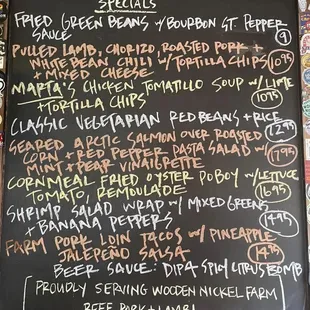 SPECIALS
FRIED GREEN BEANS W/ BOURBON ST. PEPPER
SAUCE 9
PULLED LAMB, CHORIZO, ROASTED PORK +
WHITE BEAN CHILI W/ TORTILLA CHIPS
+ MIXED CHEESE 10.95
MARTA'S CHICKEN TOMATILLO SOUP W/ LIME
+ TORTILLA CHIPS 10.95
CLASSIC VEGETARIAN RED BEANS + RICE
12.95
SEARED ARCTIC SALMON OVER ROASTED
CORN + RED PEPPER PASTA SALAD W/
MINT + PEAR VINAIGRETTE 17.95
CORNMEAL FRIED OYSTER POBOY W/ LETTUCE
TOMATO, REMOULADE 16.95
SHRIMP SALAD WRAP W/ MIXED GREENS
+ BANANA PEPPERS 14.95
FARM PORK LOIN TACOS W/ PINEAPPLE
JALEPEÑO SALSA 14.95
BEER SAUCE: DIPA SPICY CITRUS BOMB
PROUDLY SERVING WOODEN NICKEL FARM
BEEF, PORK + LAMB!